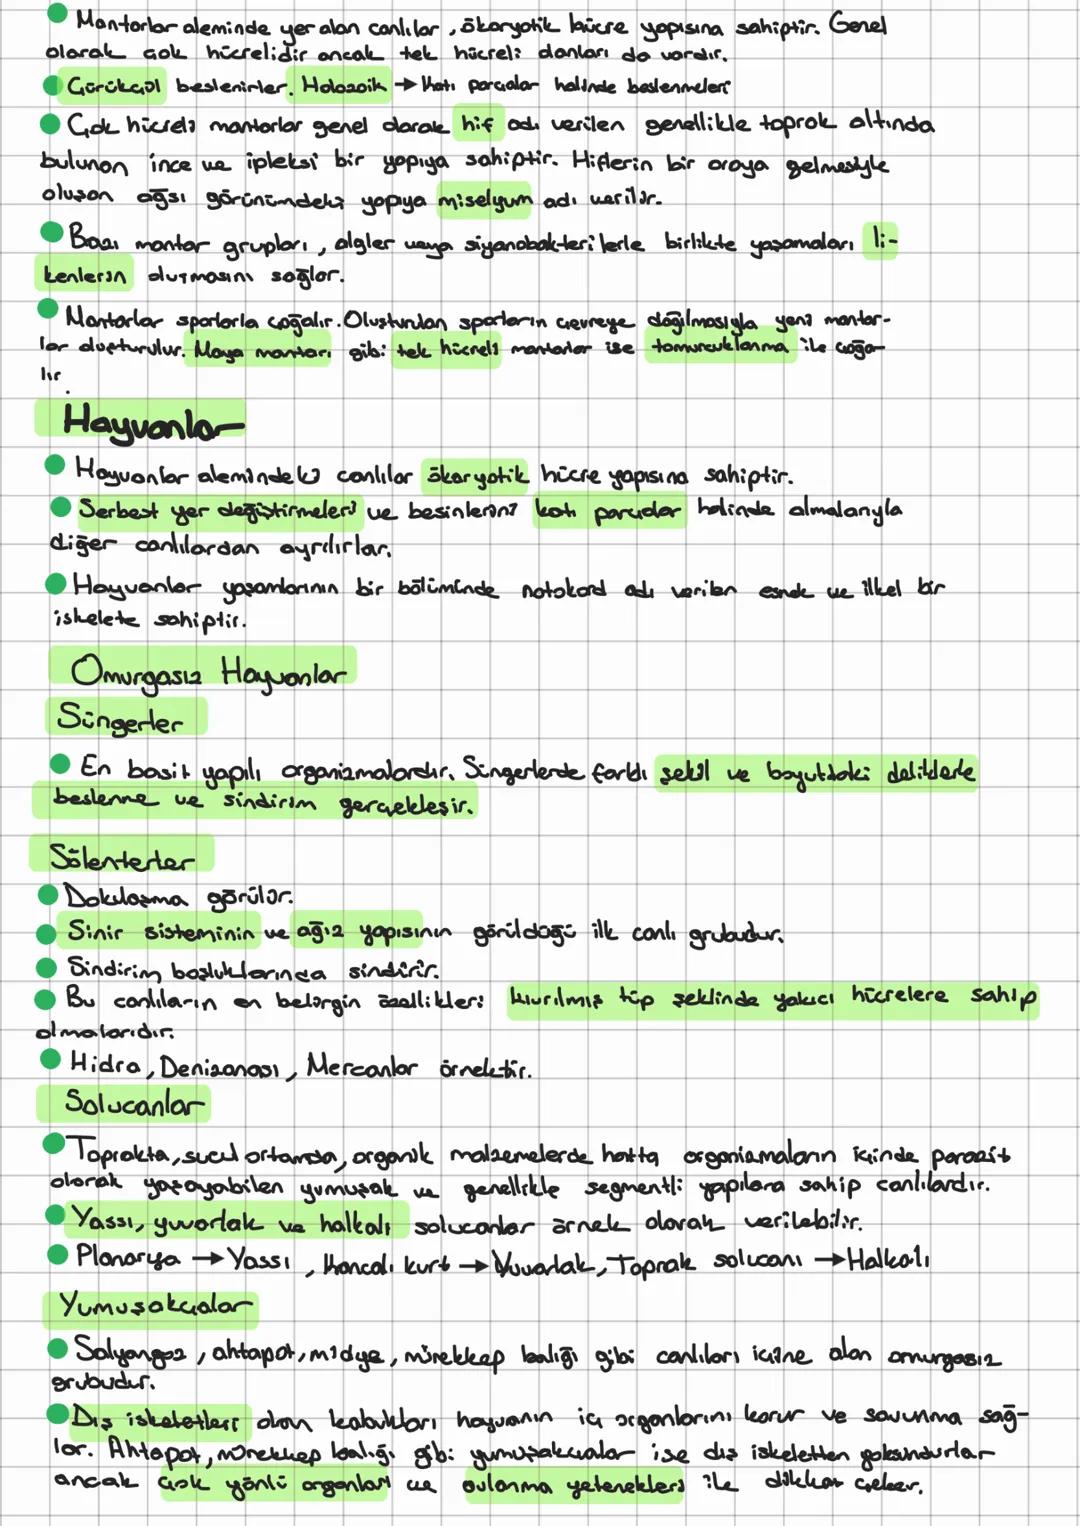 Mantarlar aleminde yer alan canlılar, ökaryotik hücre yapısına sahiptir. Genel
olarak çok hücrelidir ancak tek hücreli olanları da vardır.
Çürükçül beslenirler. Holozoik → Katı parçalar halinde beslenmeleri
Çok hücreli mantarlar genel olarak hif adı verilen genellikle toprak altında
bulunan ince ve ipleksi bir yapıya sahiptir. Hiflerin bir araya gelmesiyle
oluşan ağsı görünümdeki yapıya miselyum adı verilir.
Bazı mantar grupları, algler veya siyanobakterilerle birlikte yaşamaları li-
kenlerin oluşmasını sağlar.
Mantarlar sporlarla çoğalır. Oluşturulan sporların çevreye dağılmasıyla yeni mantar-
lar oluşturulur. Maya mantarı gibi tek hücreli mantarlar ise tomurcuklanma ile çoğa-
lır
.
Hayvanlar
Hayvanlar alemindeki canlılar ökaryotik hücre yapısına sahiptir.
Serbest yer değiştirmeleri ve besinlerini katı parçalar halinde almalarıyla
diğer canlılardan ayrılırlar.
Hayvanlar yaşamlarının bir bölümünde notokord adı verilen esnek ve ilkel bir
iskelete sahiptir.
Omurgasız Hayvanlar
Süngerler
En basit yapılı organizmalardır. Süngerlerde farklı şekil ve boyuttaki deliklerle
beslenme ve sindirim gerçekleşir.
Sölenterler
Dokulaşma görülür.
Sinir sisteminin ve ağız yapısının görüldüğü ilk canlı grubudur.
Sindirim boşluklarında sindirir.
Bu canlıların en belirgin özellikleri kıvrılmış tüp şeklinde yakıcı hücrelere sahip
olmalarıdır.
Hidra, Denizanası, Mercanlar örnektir.
Solucanlar
Toprakta, sucul ortamda, organik malzemelerde hatta organizmaların içinde parazit
olarak yaşayabilen yumuşak ve genellikle segmentli yapılara sahip canlılardır.
Yassı, yuvarlak ve halkalı solucanlar örnek olarak verilebilir.
Planarya → Yassı, Kancalı kurt → Yuvarlak, Toprak solucanı → Halkalı
Yumuşakçalar
Salyangoz, ahtapot, midye, mürekkep balığı gibi canlıları içine alan omurgasız
grubudur.
Dış iskeletleri olan kabukları hayvanın iç organlarını korur ve savunma sağ-
lar. Ahtapot, mürekkep balığı gibi yumuşakçalar ise dış iskeletten yoksundurlar
ancak çok yönlü organları ve avlanma yetenekleri ile dikkat çeker.